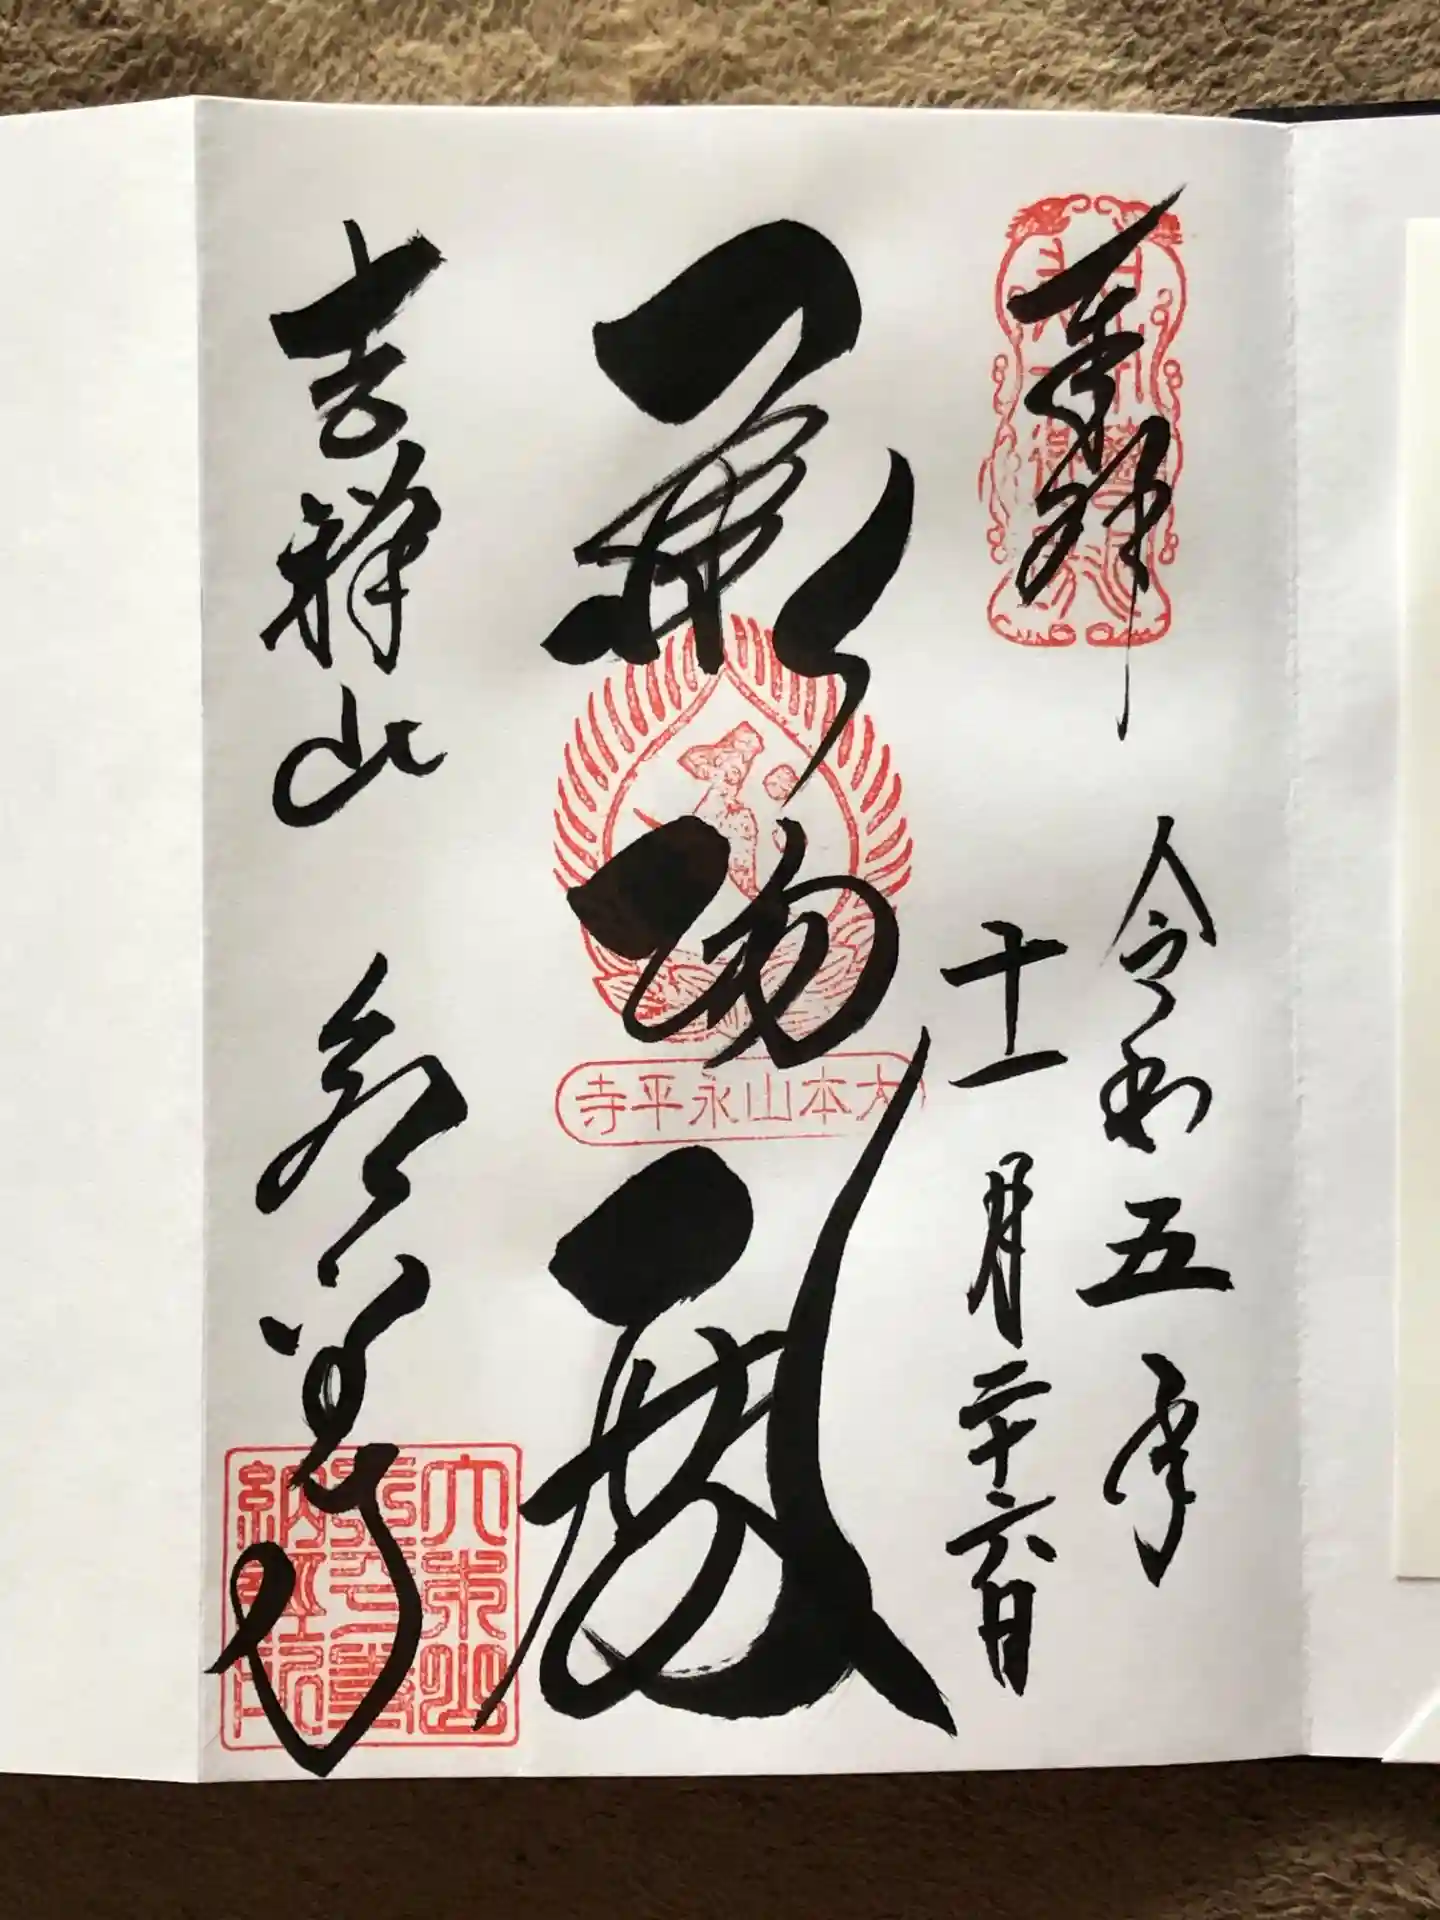 奉拝
令和五年
十一月二十六日
承陽殿
大本山永平寺
吉祥山 永平寺